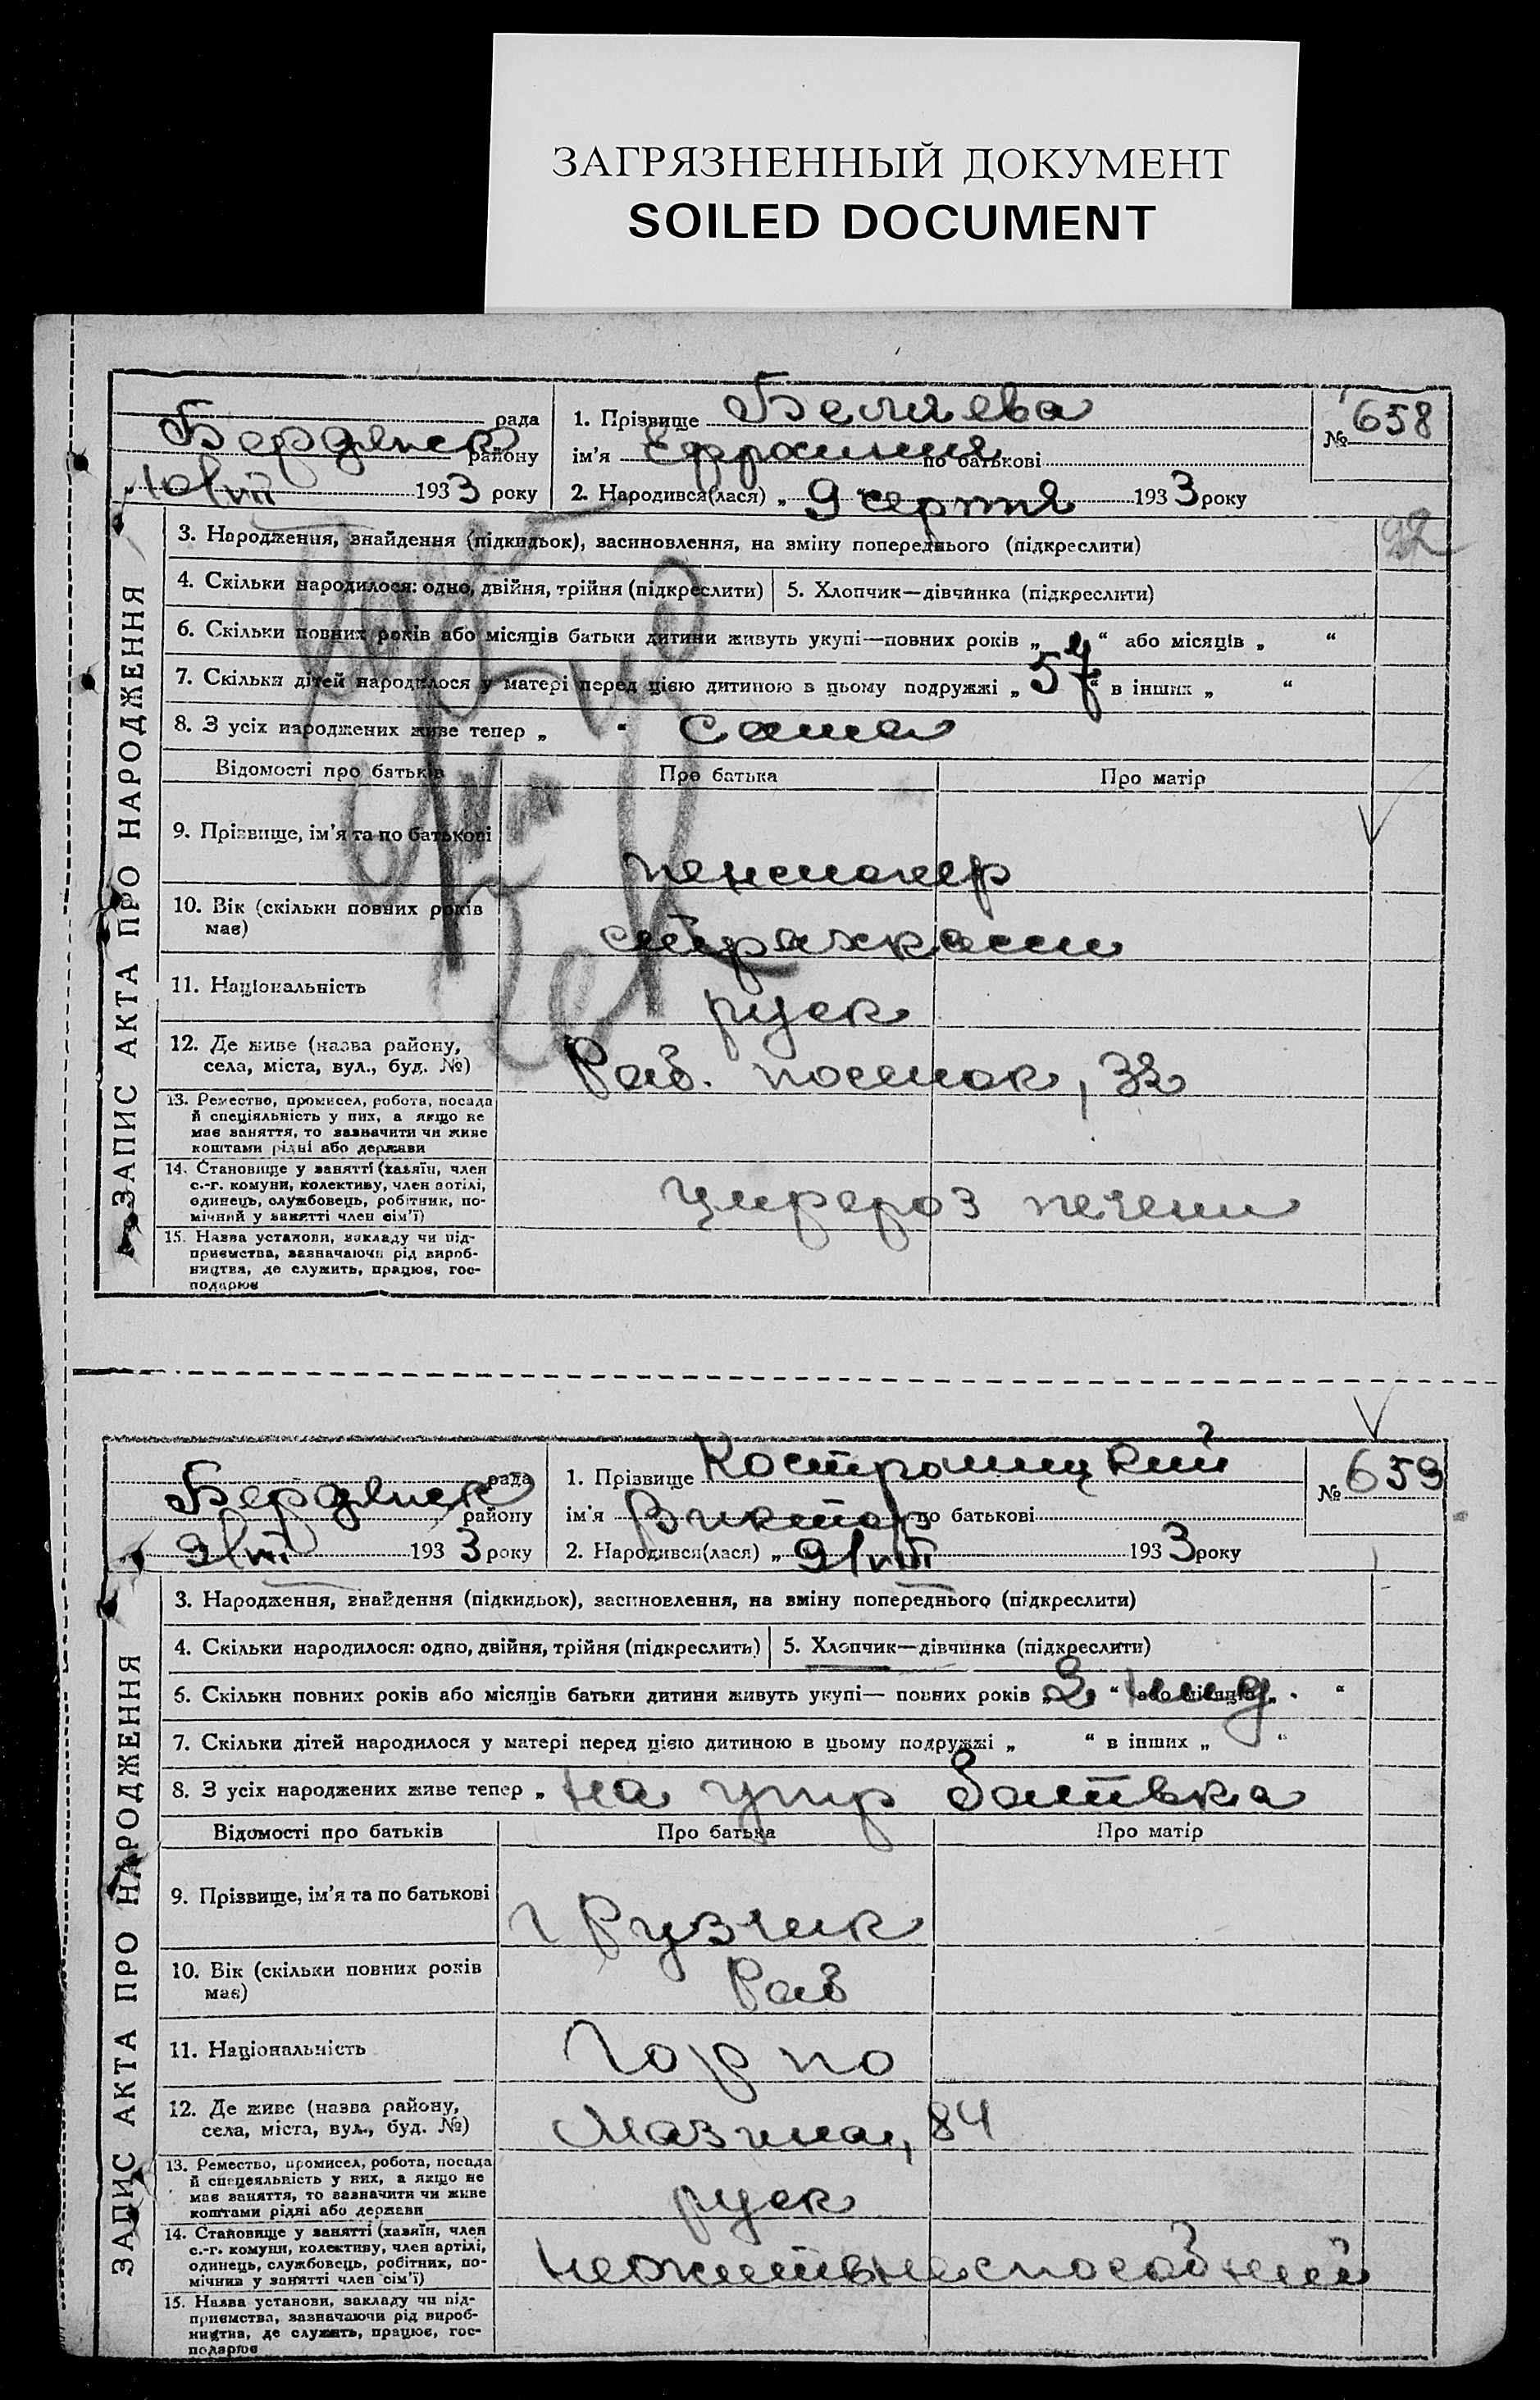 ЗАГРЯЗНЕННЫЙ ДОКУМЕНТ
SOILED DOCUMENT
ЗАПИС АКТА ПРО НАРОДЖЕННЯ
рада
Бердянск
району
10/VIII 1933 року
1. Прізвище Беляева
ім'я по батькові
2. Народився(лася) „ 9 " серпня 1933 року
№ 658
3. Народження, знайдення (підкидьок), засиновлення, на зміну попереднього (підкреслити)
4. Скільки народилося: одно, двійня, трійня (підкреслити) 5. Хлопчик—дівчинка (підкреслити)
6. Скільки повних років або місяців батьки дитини живуть укупі—повних років „ " або місяців „ "
7. Скільки дітей народилося у матері перед цією дитиною в цьому подружжі „ 57 " в інших „ "
8. З усіх народжених живе тепер „ " сама
Відомості про батьків Про батька Про матір
9. Прізвище, ім'я та по батькові
пенсионер
10. Вік (скільки повних років
має)
страхкассы
11. Національність
руск
12. Де живе (назва району,
села, міста, вул., буд. №)
Раб. поселок, 32
13. Ремество, промисел, робота, посада
й спеціяльність у них, а якщо не
має заняття, то зазначити чи живе
коштами рідні або держави
14. Становище у занятті (хазяїн, член
с.-г. комуни, колективу, член артілі,
одинець, службовець, робітник, по-
мічний у занятті член сім'ї)
цирероз печени
15. Назва установи, закладу чи під-
приємства, зазначаючи рід вироб-
ництва, де служить, працює, гос-
подарює
ЗАПИС АКТА ПРО НАРОДЖЕННЯ
рада
Бердянск
району
9/VIII 1933 року
1. Прізвище Костромицкий
ім'я Виктор по батькові
2. Народився(лася) „ 9/VIII 1933 року
№ 659
3. Народження, знайдення (підкидьок), засиновлення, на зміну попереднього (підкреслити)
4. Скільки народилося: одно, двійня, трійня (підкреслити) 5. Хлопчик—дівчинка (підкреслити)
6. Скільки повних років або місяців батьки дитини живуть укупі— повних років „ 2 " або місяців „ "
7. Скільки дітей народилося у матері перед цією дитиною в цьому подружжі „ " в інших „ "
8. З усіх народжених живе тепер „ на упр
Відомості про батьків Про батька Про матір
9. Прізвище, ім'я та по батькові
грузчик
10. Вік (скільки повних років
має)
Раб
11. Національність
Горпо
12. Де живе (назва району,
села, міста, вул., буд. №)
Мазина, 84
13. Ремество, промисел, робота, посада
й спецеяльність у них, а якщо не
має заняття, то зазначити чи живе
коштами рідні або держави
руск
14. Становище у занятті (хазяїн, член
с.-г. комуни, колективу, член артілі,
одинець, службовець, робітник, по-
мічний у занятті член сім'ї)
15. Назва установи, закладу чи під-
приємства, зазначаючи рід вироб-
ництва, де служить, працює, гос-
подарює